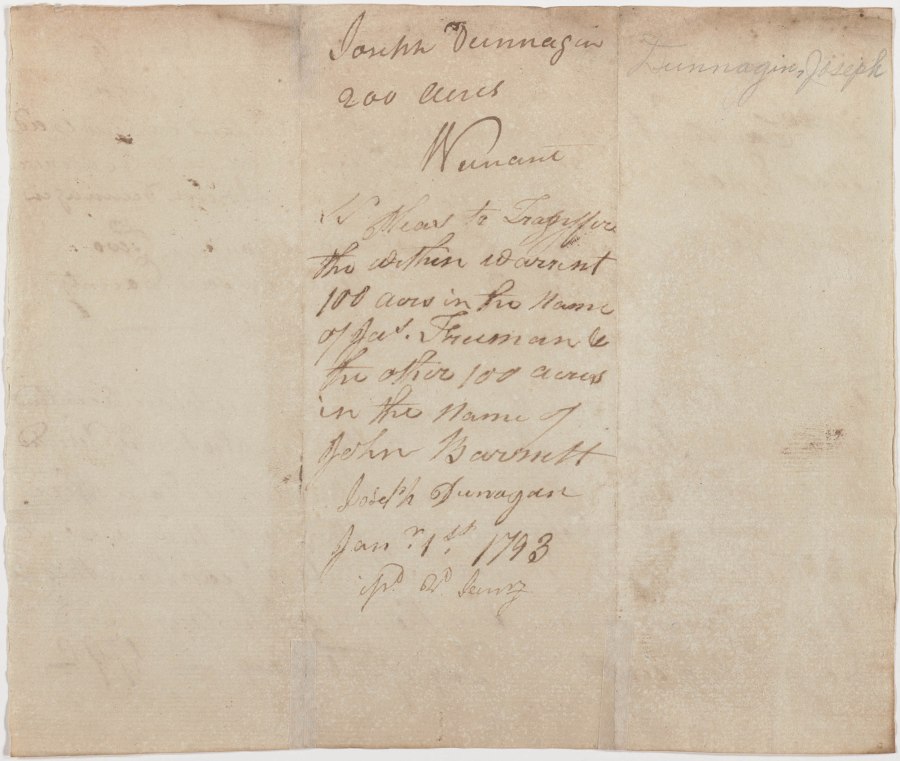 Joseph Dunnagin
200 acres
Warrant
Sr Pleas to Transfere
the within warrent
100 acres in the Name
of Jas. Freeman &
the other 100 acres
in the Name of
John Barnett
Joseph Dunagan
Janr. 1st. 1793
2d Jany
Dunnagin, Joseph